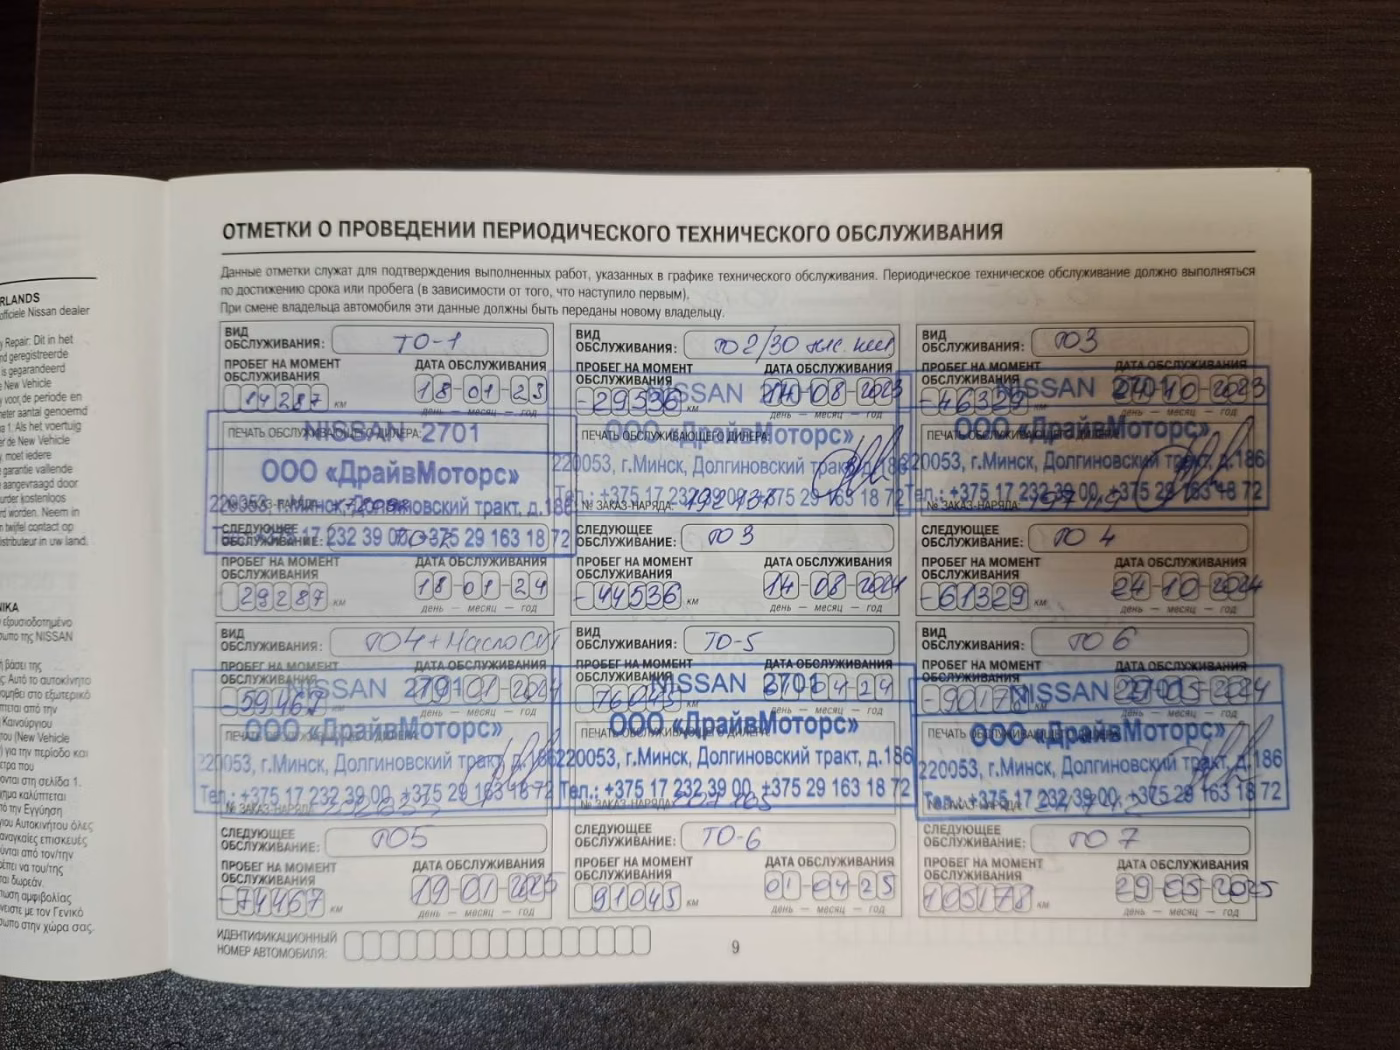 RLANDS
officiele Nissan dealer
Repair. Dit in het
nd geregistreerde
is gegarandeerd
New Vehicle
voor de periode en
meter aantal genoemd
1. Als het voertuig
er de New Vehicle
moet iedere
garantie vallende
aangevraagd door
urder kosteloos
rd worden. Neem in
twijfel contact op
stributeur in uw land.
ΝΙΚΑ
εξουσιοδοτημένο
της NISSAN
βάσει της
Αυτό το αυτοκίνητο
από την
Καινούργιου
(New Vehicle
για την περίοδο και
που
στη σελίδα 1.
καλύπτεται
την Εγγύηση
Αυτοκινήτου όλες
επισκευές
από τον/την
του/της
δωρεάν.
αμφιβολίας
με το Γενικό
στην χώρα σας.
ОТМЕТКИ О ПРОВЕДЕНИИ ПЕРИОДИЧЕСКОГО ТЕХНИЧЕСКОГО ОБСЛУЖИВАНИЯ
Данные отметки служат для подтверждения выполненных работ, указанных в графике технического обслуживания. Периодическое техническое обслуживание должно выполняться
по достижению срока или пробега (в зависимости от того, что наступило первым).
При смене владельца автомобиля эти данные должны быть переданы новому владельцу.
ВИД ОБСЛУЖИВАНИЯ: ТО-1
ПРОБЕГ НА МОМЕНТ ОБСЛУЖИВАНИЯ 14287 км
ДАТА ОБСЛУЖИВАНИЯ 18-01-23
день — месяц — год
ПЕЧАТЬ ОБСЛУЖИВАЮЩЕГО ДИЛЕРА:
NISSAN 2701
ООО «ДрайвМоторс»
г.Минск, Долгиновский тракт, д.186
232 39 00, +375 29 163 18 72
СЛЕДУЮЩЕЕ ОБСЛУЖИВАНИЕ: ТО-2
ПРОБЕГ НА МОМЕНТ ОБСЛУЖИВАНИЯ 29287 км
ДАТА ОБСЛУЖИВАНИЯ 18-01-24
день — месяц — год
ВИД ОБСЛУЖИВАНИЯ: ТО 2/30 тыс. км
ПРОБЕГ НА МОМЕНТ ОБСЛУЖИВАНИЯ -29536 км
ДАТА ОБСЛУЖИВАНИЯ 14-08-2023
день — месяц — год
ПЕЧАТЬ ОБСЛУЖИВАЮЩЕГО ДИЛЕРА:
NISSAN 2701
ООО «ДрайвМоторс»
220053, г.Минск, Долгиновский тракт, д.186
Тел.: +375 17 232 39 00, +375 29 163 18 72
№ ЗАКАЗ-НАРЯДА:
СЛЕДУЮЩЕЕ ОБСЛУЖИВАНИЕ: ТО 3
ПРОБЕГ НА МОМЕНТ ОБСЛУЖИВАНИЯ -44536 км
ДАТА ОБСЛУЖИВАНИЯ 14-08-2024
день — месяц — год
ВИД ОБСЛУЖИВАНИЯ: ТО3
ПРОБЕГ НА МОМЕНТ ОБСЛУЖИВАНИЯ -46329 км
ДАТА ОБСЛУЖИВАНИЯ 24-10-2023
NISSAN 2701
ООО «ДрайвМоторс»
220053, г.Минск, Долгиновский тракт, д.186
Тел.: +375 17 232 39 00, +375 29 163 18 72
№ ЗАКАЗ-НАРЯДА:
СЛЕДУЮЩЕЕ ОБСЛУЖИВАНИЕ: ТО 4
ПРОБЕГ НА МОМЕНТ ОБСЛУЖИВАНИЯ -61329 км
ДАТА ОБСЛУЖИВАНИЯ 24-10-2024
день — месяц — год
ВИД ОБСЛУЖИВАНИЯ: ТО4+Масло
ПРОБЕГ НА МОМЕНТ ОБСЛУЖИВАНИЯ -59467
ДАТА ОБСЛУЖИВАНИЯ 19-01-2024
NISSAN 2701
ООО «ДрайвМоторс»
220053, г.Минск, Долгиновский тракт, д.186
Тел.: +375 17 232 39 00, +375 29 163 18 72
№ ЗАКАЗ-НАРЯДА:
СЛЕДУЮЩЕЕ ОБСЛУЖИВАНИЕ: ТО5
ПРОБЕГ НА МОМЕНТ ОБСЛУЖИВАНИЯ -74467 км
ДАТА ОБСЛУЖИВАНИЯ 19-01-2025
день — месяц — год
ВИД ОБСЛУЖИВАНИЯ: ТО-5
ПРОБЕГ НА МОМЕНТ ОБСЛУЖИВАНИЯ 76045 км
ДАТА ОБСЛУЖИВАНИЯ 01-04-24
NISSAN 2701
ООО «ДрайвМоторс»
220053, г.Минск, Долгиновский тракт, д.186
Тел.: +375 17 232 39 00, +375 29 163 18 72
№ ЗАКАЗ-НАРЯДА:
СЛЕДУЮЩЕЕ ОБСЛУЖИВАНИЕ: ТО-6
ПРОБЕГ НА МОМЕНТ ОБСЛУЖИВАНИЯ 91045 км
ДАТА ОБСЛУЖИВАНИЯ 01-04-25
день — месяц — год
ВИД ОБСЛУЖИВАНИЯ: ТО 6
ПРОБЕГ НА МОМЕНТ ОБСЛУЖИВАНИЯ -90178
ДАТА ОБСЛУЖИВАНИЯ 29-05-2024
NISSAN 2701
ООО «ДрайвМоторс»
220053, г.Минск, Долгиновский тракт, д.186
Тел.: +375 17 232 39 00, +375 29 163 18 72
СЛЕДУЮЩЕЕ ОБСЛУЖИВАНИЕ: ТО 7
ПРОБЕГ НА МОМЕНТ ОБСЛУЖИВАНИЯ 105178 км
ДАТА ОБСЛУЖИВАНИЯ 29-05-2025
день — месяц — год
ИДЕНТИФИКАЦИОННЫЙ
НОМЕР АВТОМОБИЛЯ:
9